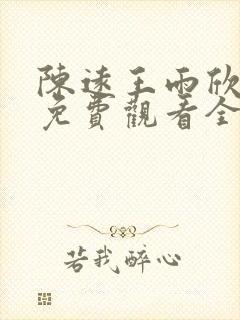 陳遠王雨欣
免費觀看全
若我醉心